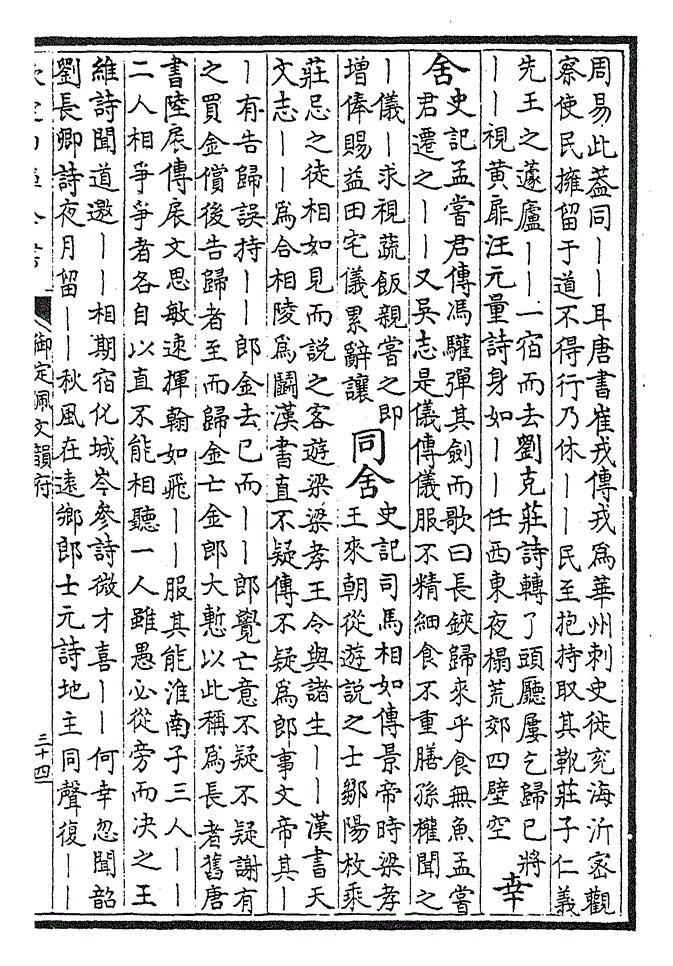 周易此葢同丨丨耳唐書崔戎傳戎為華州刺史徙兖海沂密觀
察使民擁留于道不得行乃休丨丨民至抱持取其靴莊子仁義
先王之蘧廬丨丨一宿而去劉克莊詩轉了頭廳屢乞歸已將
丨丨視黃扉汪元量詩身如丨丨任西東夜榻荒郊四壁空
幸
舍
史記孟嘗君傳馮驩彈其劍而歌曰長鋏歸來乎食無魚孟嘗
君遷之丨丨又吳志是儀傳儀服不精細食不重膳孫權聞之
丨儀丨求視蔬飯親嘗之即
增俸賜益田宅儀累辭讓
同舍
史記司馬相如傳景帝時梁孝
王來朝從遊說之士鄒陽枚乘
莊忌之徒相如見而說之客遊梁梁孝王令與諸生丨丨漢書天
文志丨丨為合相陵為鬭漢書直不疑傳不疑為郎事文帝其丨
丨有告歸誤持丨丨郎金去已而丨丨郎覺亡意不疑不疑謝有
之買金償後告歸者至而歸金亡金郎大慙以此稱為長者舊唐
書陸扆傳扆文思敏速揮翰如飛丨丨服其能淮南子三人丨丨
二人相爭爭者各自以直不能相聽一人雖愚必從旁而决之王
維詩聞道邀丨丨相期宿化城岑參詩微才喜丨丨何幸忽聞韶
劉長卿詩夜月留丨丨秋風在遠鄉郎士元詩地主同聲復丨丨
御定佩文韻府
三十四